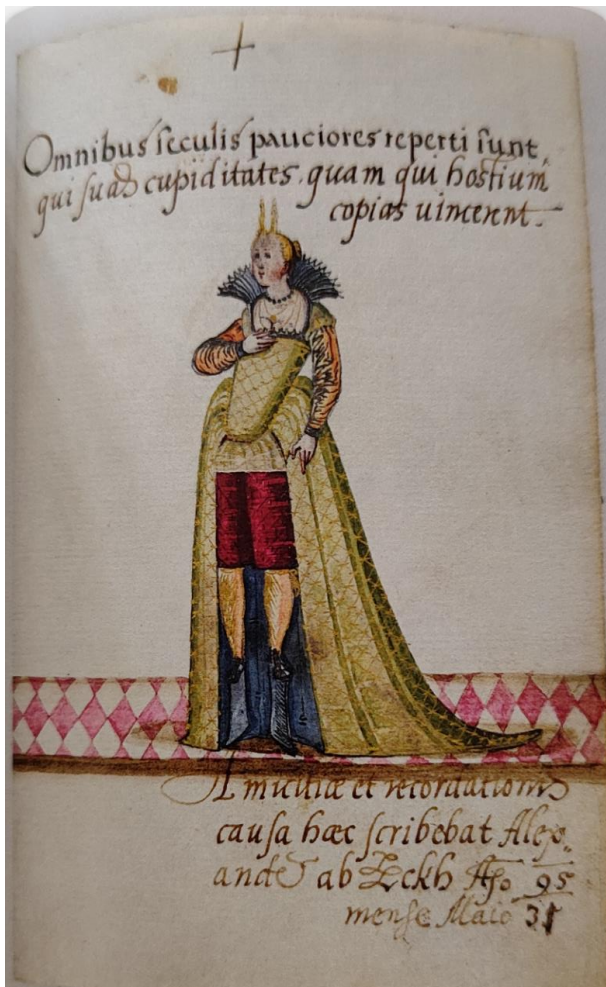 Omnibus seculis pauciores reperti sunt,
qui suas cupiditates. quam qui hostium
copias uincerent.
Amicitiæ et recordationis
causa hæc scribebat Alex-
ander ab Eckh Aº. 95
mense Maio 31